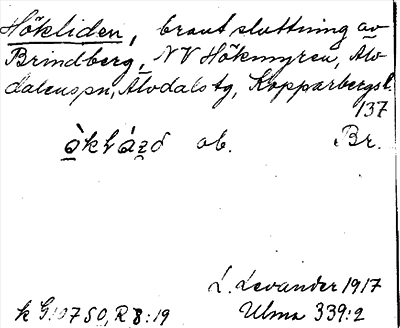 Hökliden, brant sluttning av
Brindberg, NV Hökmyren, Älv-
dalens sn, Älvdals tg, Kopparbergs l.
137
ob. Br.
L. Levander 1917
k G:0750, R 8:19 Ulma 339:2